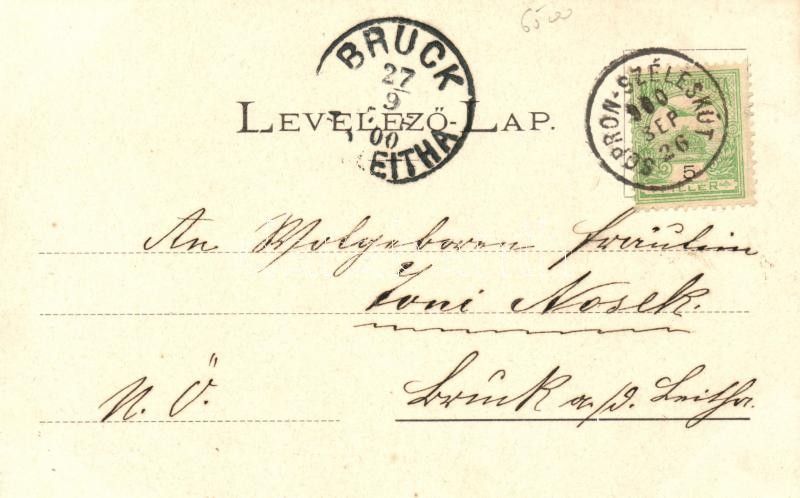 6500
BRUCK
27/9
00
LEITHA
SOPRON-SZÉLESKÚT
900
SEP
26
5
FILLER
LEVELEZŐ-LAP.
An Wolgeboren Fräulein
Toni Nosek.
N. Ö.
Bruck a./d. Leitha.